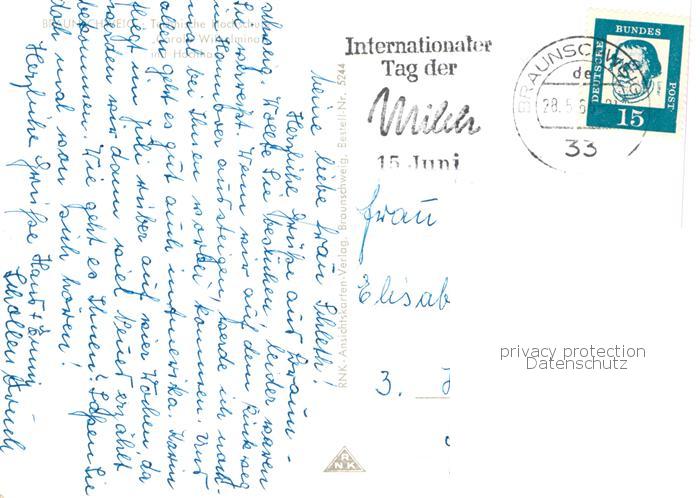 BRAUNSCHWEIG - Technische Hochschule
Carolo Wilhelmina
mit Hochhaus
Internationaler
Tag der
Milch
15. Juni
BRAUNSCHWEIG
28.5.6
33
DEUTSCHE
BUNDES
POST
15
RNK - Ansichtskarten-Verlag, Braunschweig, Bestell-Nr. 5244
RNK
Meine liebe Frau
Herzliche Grüße aus Braun-
schweig. Wollte Sie besuchen, leider waren
Sie verreist. Wenn wir auf dem Rückweg
in Hannover aussteigen, werde ich noch-
mal bei Ihnen vorbei kommen. Uns
allen geht es gut auch in Amerika.
fliegt im Juli rüber auf vier Wochen da
werden wir dann viel Neues erzählt
bekommen. Wie geht es Ihnen? Lassen Sie
doch mal von sich hören!
Herzliche Grüße Hans +
Frau
Elisab
3.
privacy protection
Datenschutz